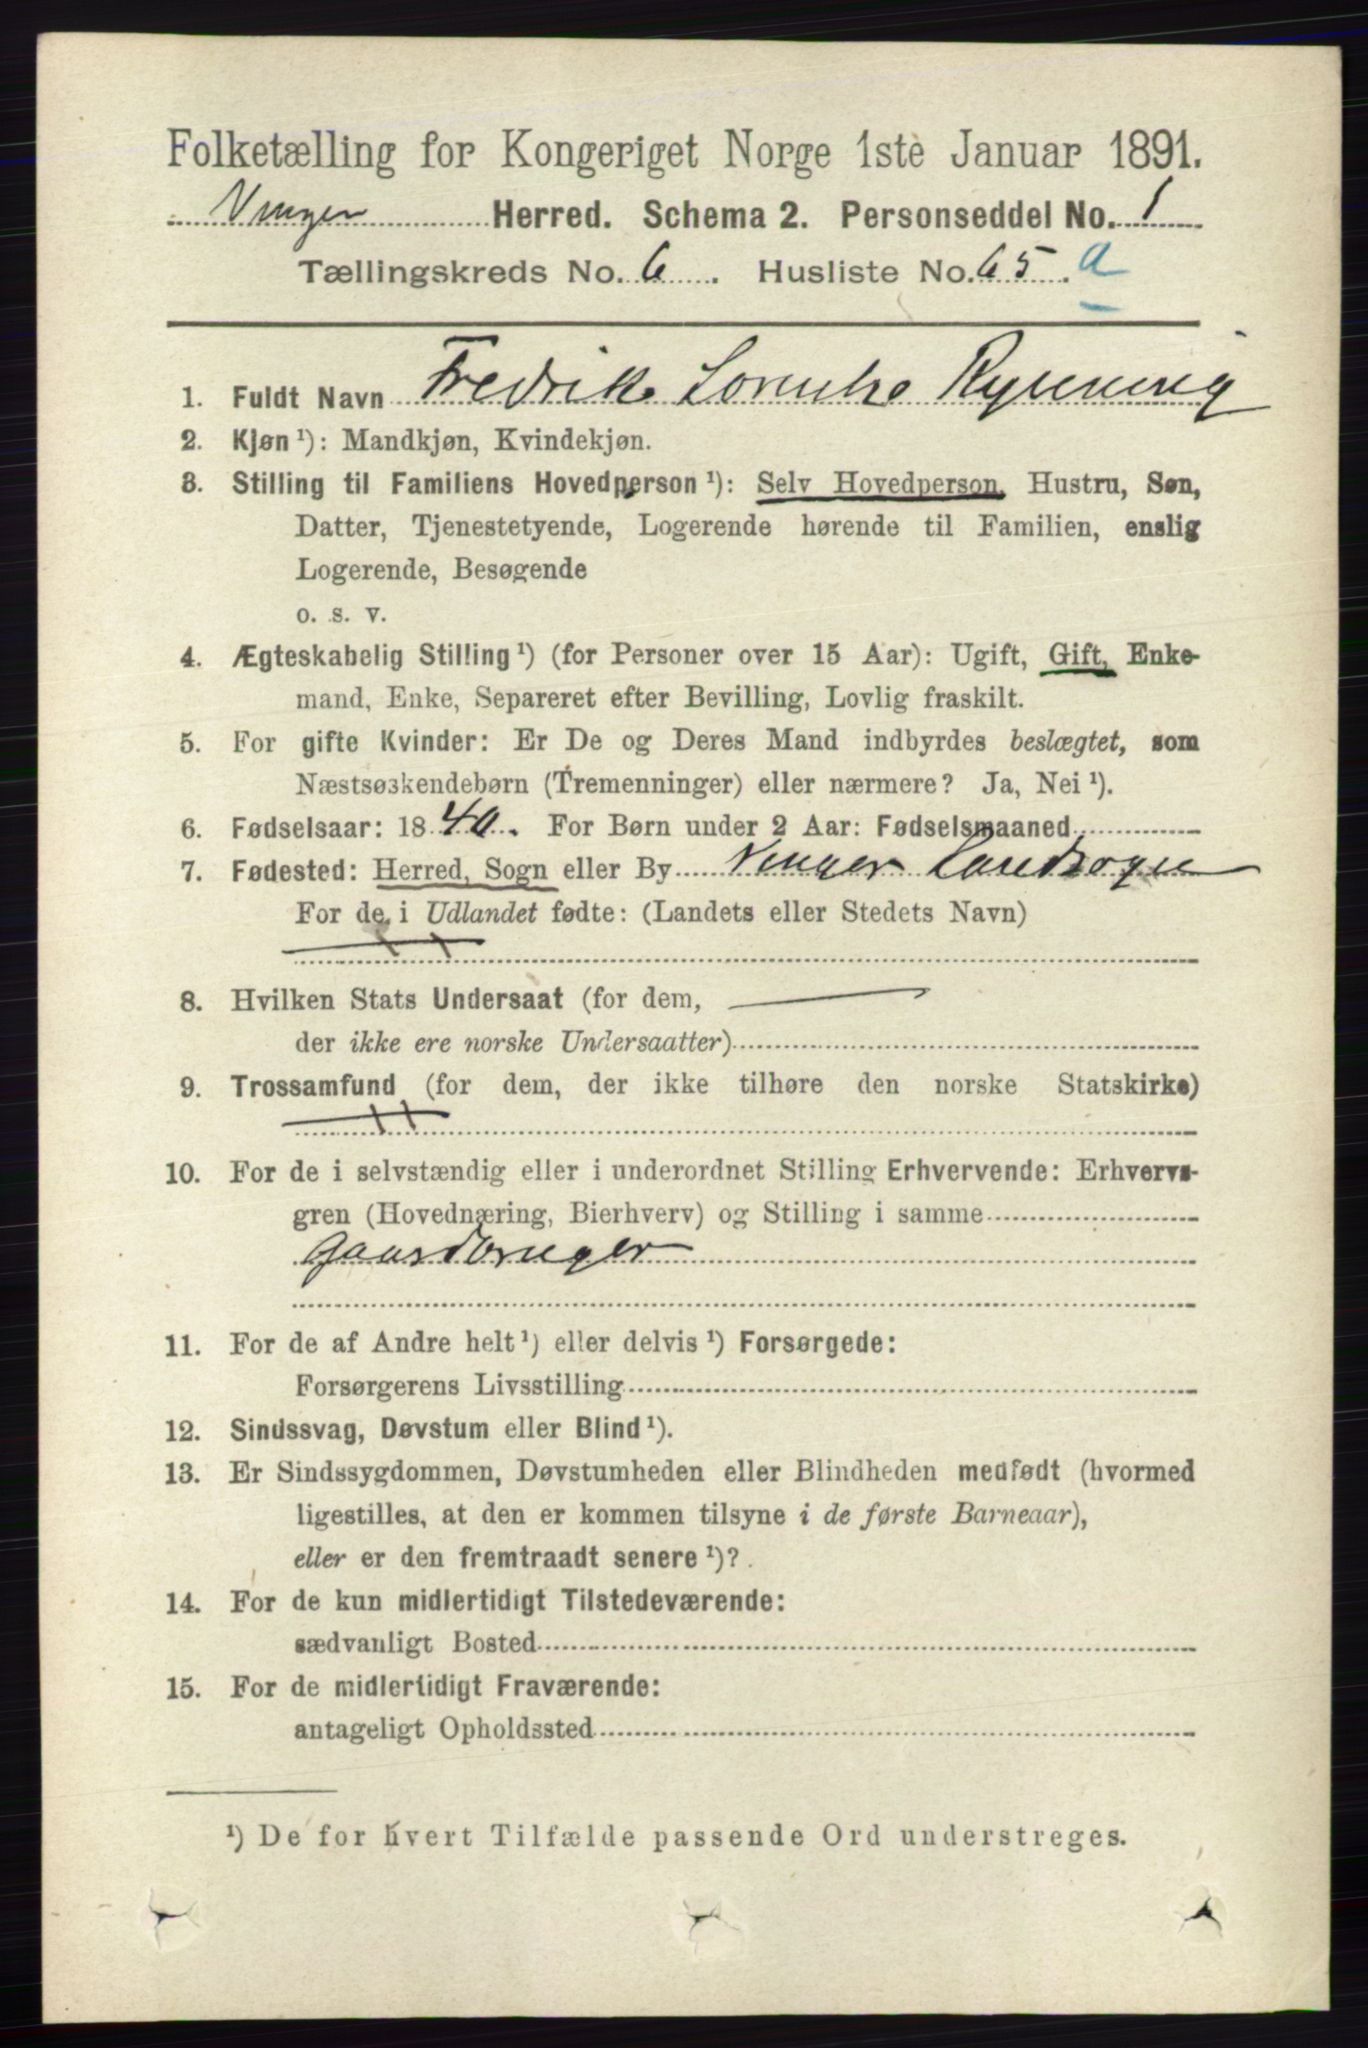 Folketælling for Kongeriget Norge 1ste Januar 1891.
Vinger Herred. Schema 2. Personseddel No. 1
Tællingskreds No. 6. Husliste No. 65. a
1. Fuldt Navn Fredrik Lorentze Rynning
2. Kjøn ¹): Mandkjøn, Kvindekjøn.
3. Stilling til Familiens Hovedperson ¹): Selv Hovedperson, Hustru, Søn,
Datter, Tjenestetyende, Logerende hørende til Familien, enslig
Logerende, Besøgende
o. s. v.
4. Ægteskabelig Stilling ¹) (for Personer over 15 Aar): Ugift, Gift, Enke-
mand, Enke, Separeret efter Bevilling, Lovlig fraskilt.
5. For gifte Kvinder: Er De og Deres Mand indbyrdes beslægtet, som
Næstsøskendebørn (Tremenninger) eller nærmere? Ja, Nei ¹).
6. Fødselsaar: 1840. For Børn under 2 Aar: Fødselsmaaned
7. Fødested: Herred, Sogn eller By Vinger Landsogn
For de i Udlandet fødte: (Landets eller Stedets Navn)
8. Hvilken Stats Undersaat (for dem,
der ikke ere norske Undersaatter)
9. Trossamfund (for dem, der ikke tilhøre den norske Statskirke)
10. For de i selvstændig eller i underordnet Stilling Erhvervende: Erhvervs-
gren (Hovednæring, Bierhverv) og Stilling i samme
Gaardbruger
11. For de af Andre helt ¹) eller delvis ¹) Forsørgede:
Forsørgerens Livsstilling
12. Sindssvag, Døvstum eller Blind ¹).
13. Er Sindssygdommen, Døvstumheden eller Blindheden medfødt (hvormed
ligestilles, at den er kommen tilsyne i de første Barneaar),
eller er den fremtraadt senere ¹)?
14. For de kun midlertidigt Tilstedeværende:
sædvanligt Bosted
15. For de midlertidigt Fraværende:
antageligt Opholdssted
¹) De for hvert Tilfælde passende Ord understreges.